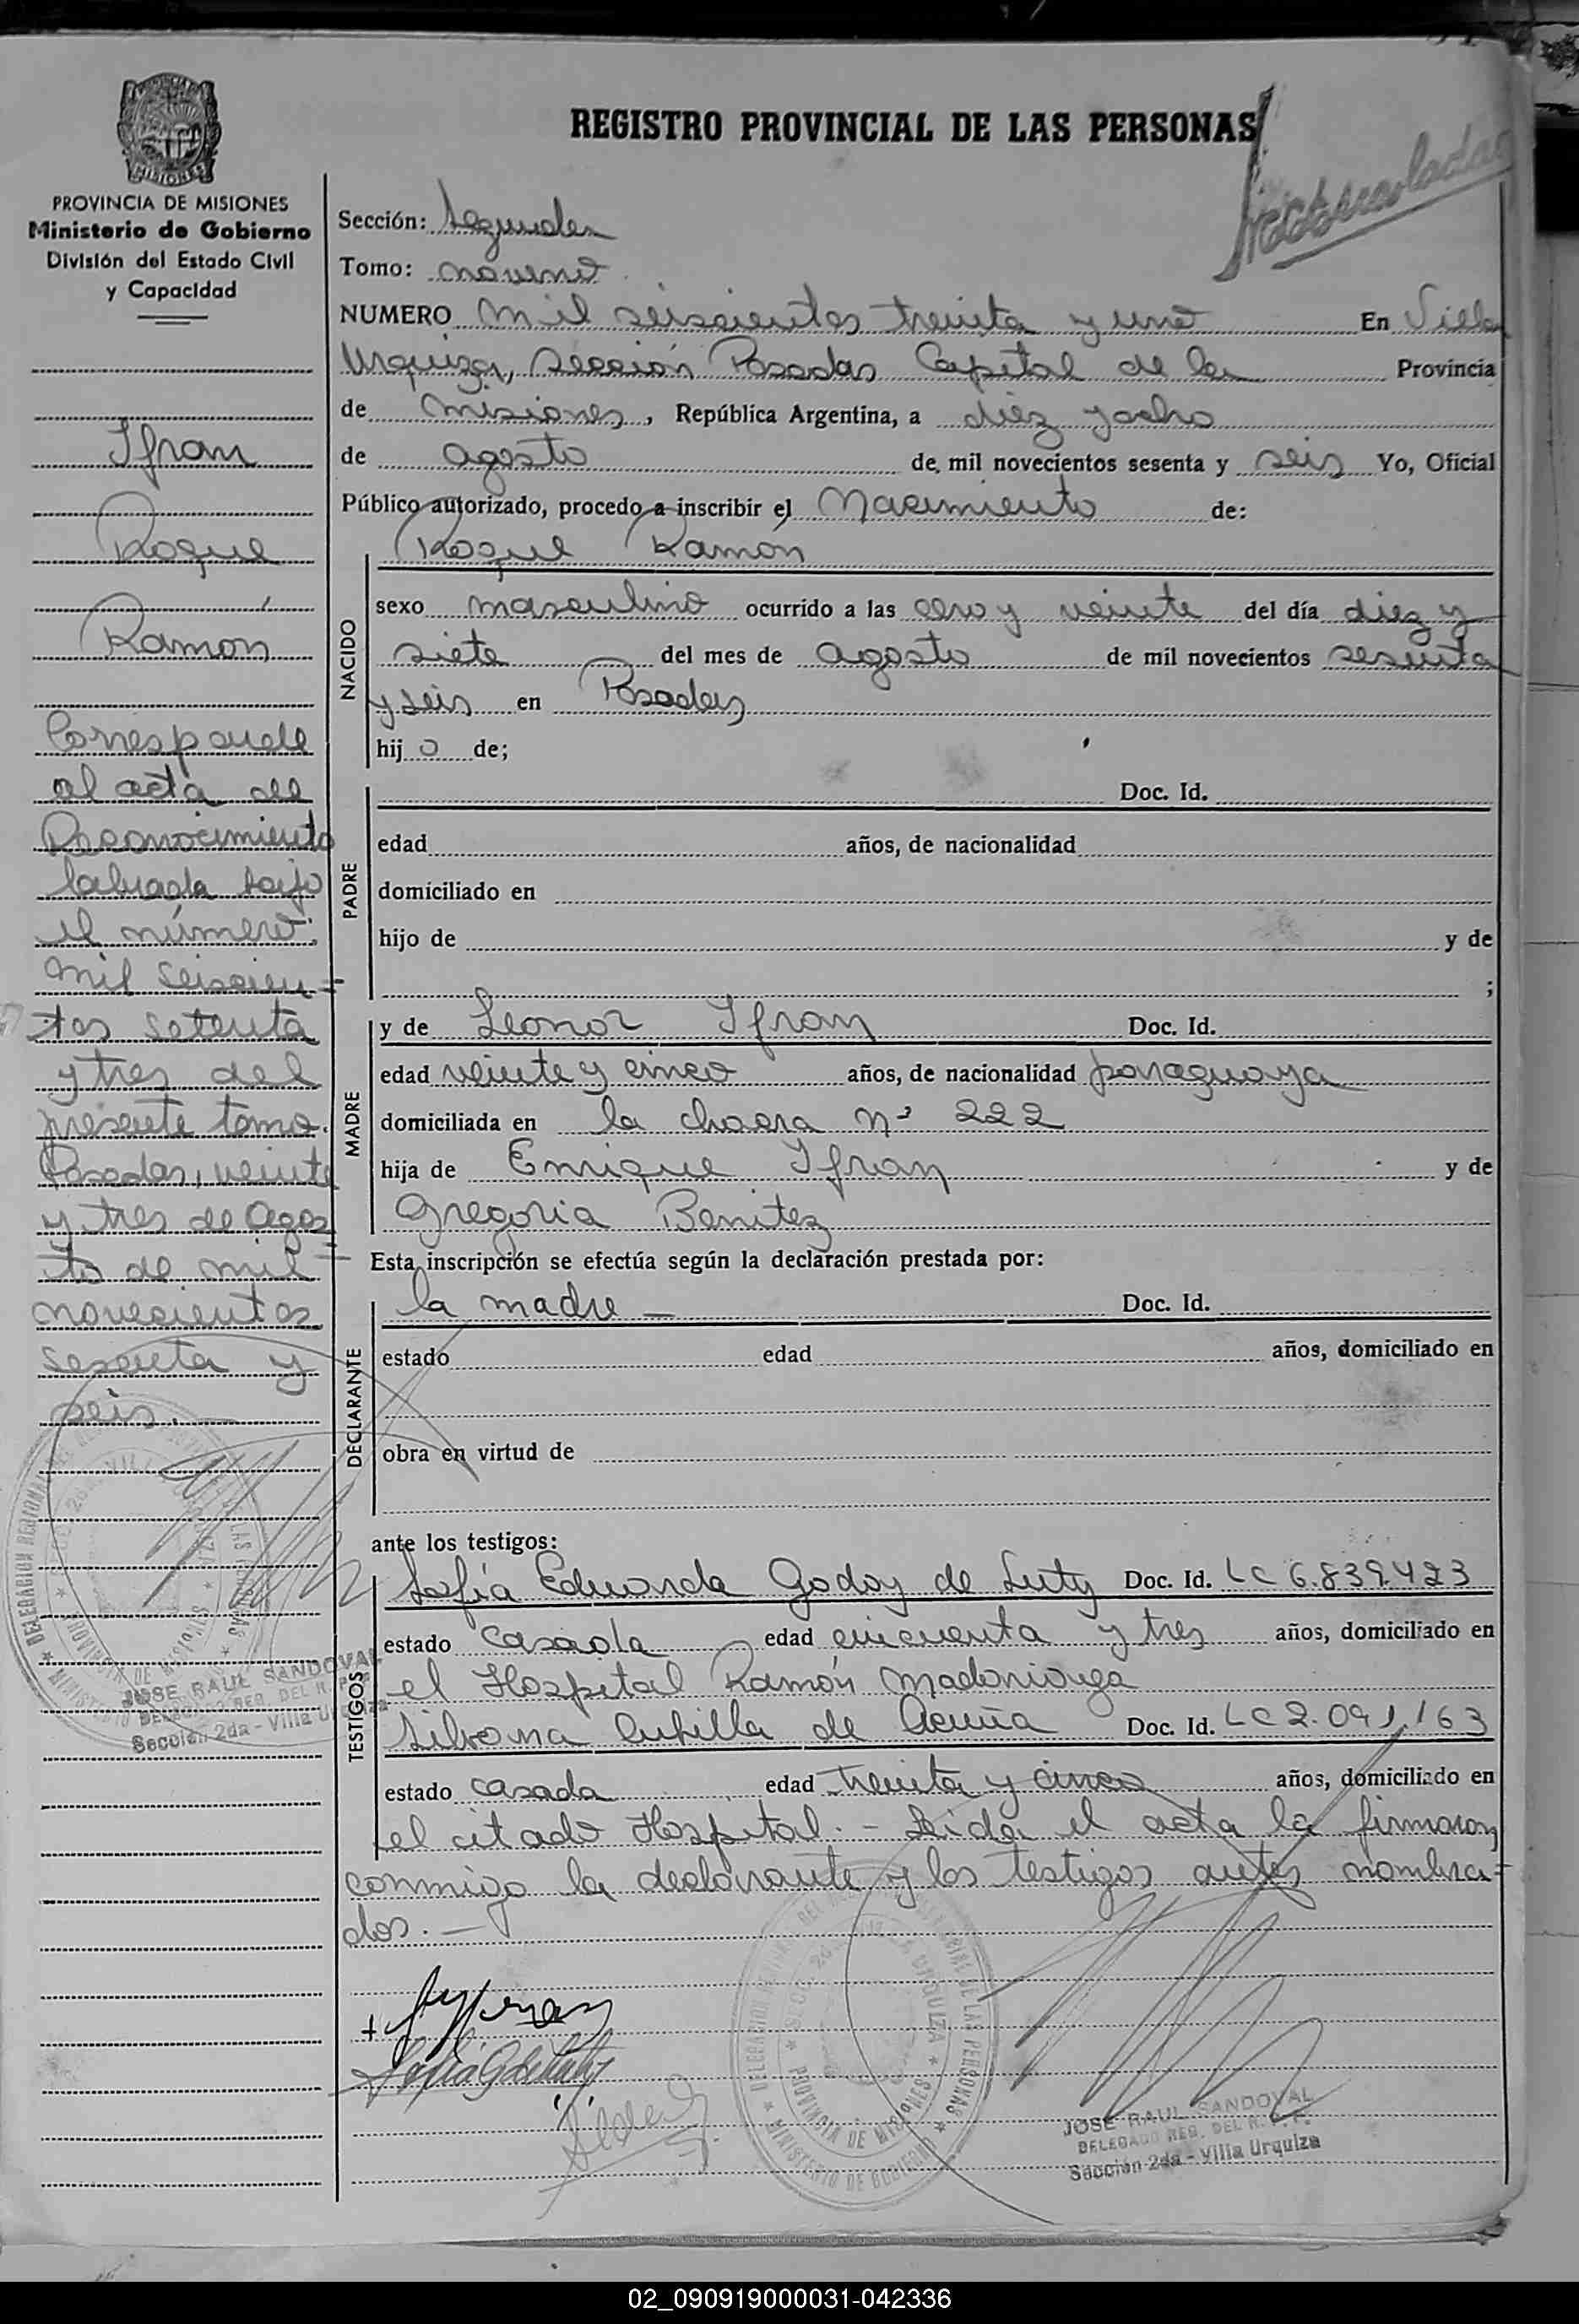 REGISTRO PROVINCIAL DE LAS PERSONAS
MISIONES
PROVINCIA DE MISIONES
Ministerio de Gobierno
División del Estado Civil
y Capacidad
Ifran
Roque
Ramón
Corresponde
al acta de
Reconocimiento
labrada bajo
el número:
mil seiscien=
tos setenta
y tres del
presente tomo.
Posadas, veinte
y tres de agos=
to de mil
novecientos
sesenta y
seis.
JOSE RAUL SANDOVAL
DELEGADO REG. DEL R. P. P.
Sección 2da - Villa Urquiza
Sección: Segunda
Tomo: noveno
NUMERO mil seiscientos treinta y uno En Villa
Urquiza, Sección Posadas Capital de la Provincia
de Misiones, República Argentina, a diez y ocho
de agosto de mil novecientos sesenta y seis Yo, Oficial
Público autorizado, procedo a inscribir el Nacimiento de:
Roque Ramón
NACIDO
sexo masculino ocurrido a las cero y veinte del día diez y
siete del mes de agosto de mil novecientos sesenta
y seis en Posadas
hijo de;
PADRE
Doc. Id.
edad años, de nacionalidad
domiciliado en
hijo de y de
;
MADRE
y de Leonor Ifran Doc. Id.
edad veinte y cinco años, de nacionalidad paraguaya
domiciliada en la chacra nº 222
hija de Enrique Ifran y de
Gregoria Benitez
Esta inscripción se efectúa según la declaración prestada por:
DECLARANTE
la madre — Doc. Id.
estado edad años, domiciliado en
obra en virtud de
ante los testigos:
TESTIGOS
Sofía Eduarda Godoy de Luty Doc. Id. LC 6.839.423
estado casada edad cincuenta y tres años, domiciliado en
el Hospital Ramón Madariaga
Silvana Cubilla de Acuña Doc. Id. LC 2.091.163
estado casada edad treinta y cinco años, domiciliado en
el citado Hospital. - Leida el acta la firmaron
conmigo la declarante y los testigos antes nombra=
dos. —
JOSE RAUL SANDOVAL
DELEGADO REG. DEL R. P. P.
Sección 2da - Villa Urquiza
02_090919000031-042336